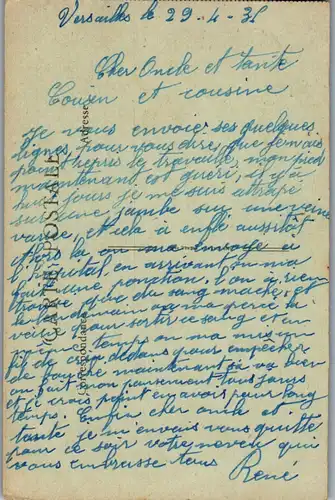 Versailles le 29-4-38
Cher Oncle et tante
Cousin et cousine
Je vous envoie ses quelques
lignes pour vous dire que je
repris le travaille, mon pied
maintenant est guéri, il y a
huit jours je me suis attrapé
sur une jambe sur une veine
varice, et cela à enflé aussitôt
alors la on ma envoyé à
l'hopital, en arrivant on ma
fait une ponction, l'on a rien
trouvé que du sang maché, et
le lendemain on ma
pour sortir ce sang et en
temps on ma mis un
dedans pour empêcher
de maintenant sa va bien
on fait mon pansement tous jours
et je crois point en avoir pour long
temps. Enfin cher oncle et
tante je m'envais vous quitté
pour ce soir votre neveu qui
vous embrasse tous
René
CARTE POSTALE
Correspondance
Adresse